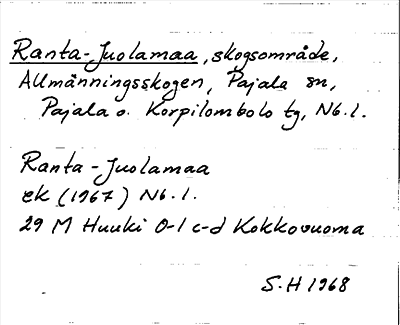 Ranta-Juolamaa, skogsområde,
Allmänningsskogen, Pajala sn,
Pajala o. Korpilombolo tg, Nb. l.
Ranta-Juolamaa
ek (1967) Nb. l.
29 M Huuki 0-1 c-d Kokkovuoma
S.H 1968